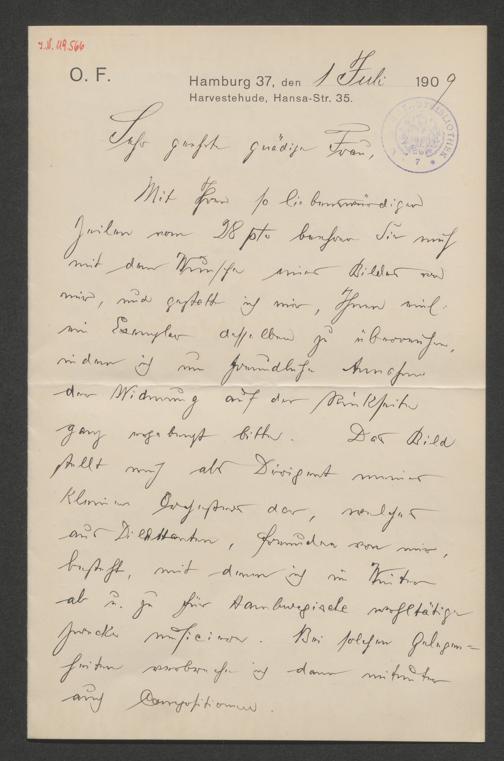 J.N. 119.566
O. F.
Hamburg 37, den 1 Juli 1909
Harvestehude, Hansa-Str. 35.
Sehr geehrte gnädige Frau,
Mit Ihren so liebenswürdigen
Zeilen vom 28 pto beehren Sie mich
mit dem Wunsche eines Bildes von
mir, und gestatte ich mir, Ihnen
ein Exemplar desselben zu überreichen,
indem ich um freundliche Annahme
der Widmung auf der Rückseite
ganz ergebenst bitte. Das Bild
stellt mich als Dirigent meines
kleinen Orchesters dar, welches
aus Dilettanten, Freunden von mir,
besteht, mit denen ich im Winter
ab u. zu für Hamburgische wohltätige
Zwecke musiciere. Bei solchen Gelegen=
heiten ich dann mitunter
auch Compositionen.